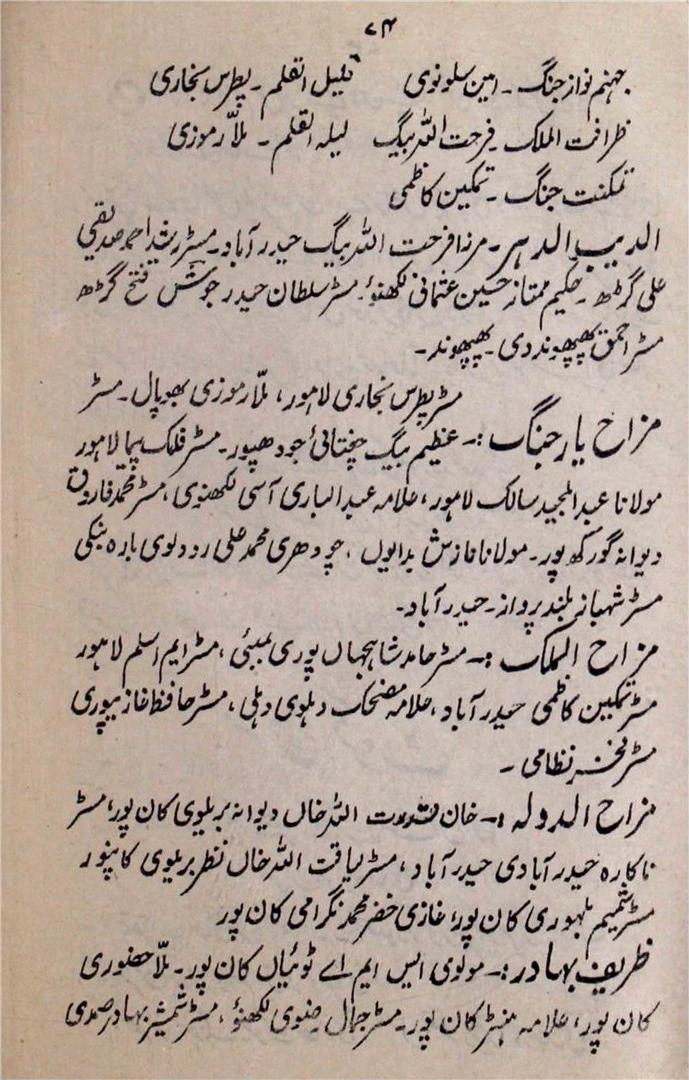 ۷۴
جہنم نواز جنگ ۔ امین سلونوی قلیل القلم ۔ پطرس بخاری
ظرافت الملک ۔ فرحت اللہ بیگ لیلہ القلم ۔ ملا رموزی
تمکنت جنگ ۔ تمکین کاظمی
الدیب الدہر ۔ مرزا فرحت اللہ بیگ حیدر آباد ۔ مسٹر رشید احمد صدیقی
علی گڑھ ۔ حکیم ممتاز حسین عثمانی لکھنؤ ۔ مسٹر سلطان حیدر جوش فتح گڑھ
مسٹر احمق پھپھوندوی ۔ پھپھوند ۔
مسٹر پطرس بخاری لاہور، ملا رموزی بھوپال ۔ مسٹر
مزاح یار جنگ :۔ عظیم بیگ چغتائی جودھپور ۔ مسٹر فلک پیما لاہور
مولانا عبدالمجید سالک لاہور، علامہ عبدالباری آسی لکھنوی، مسٹر محمد فاروق
دیوانہ گورکھ پور ۔ مولانا نازش بدایوں، چودھری محمد علی ردولوی بارہ بنکی
مسٹر شہباز بلند پرواز ۔ حیدر آباد ۔
مزاح الملک :۔ مسٹر حامد شاہجہاں پوری بمبئی، مسٹر ایم اسلم لاہور
مسٹر تمکین کاظمی حیدر آباد، علامہ مضحک دہلوی دہلی، مسٹر حافظ غازیپوری
مسٹر نظامی ۔
مزاح الدولہ :۔ خان اللہ خاں دیوانہ بریلوی کان پور، مسٹر
ناکارہ حیدر آبادی حیدر آباد، مسٹر لیاقت اللہ خاں نظر بریلوی کانپور
مسٹر شمیم بلہوری کان پور، غازی خضر محمد نگرامی کان پور
ظریف بہادر :۔ مولوی ایس ایم اے ٹوئیاں کان پور ۔ ملا حضوری
کان پور، علامہ ہنٹر کان پور ۔ مسٹر جمال رضوی لکھنؤ، مسٹر شمشیر بہادر صمدی